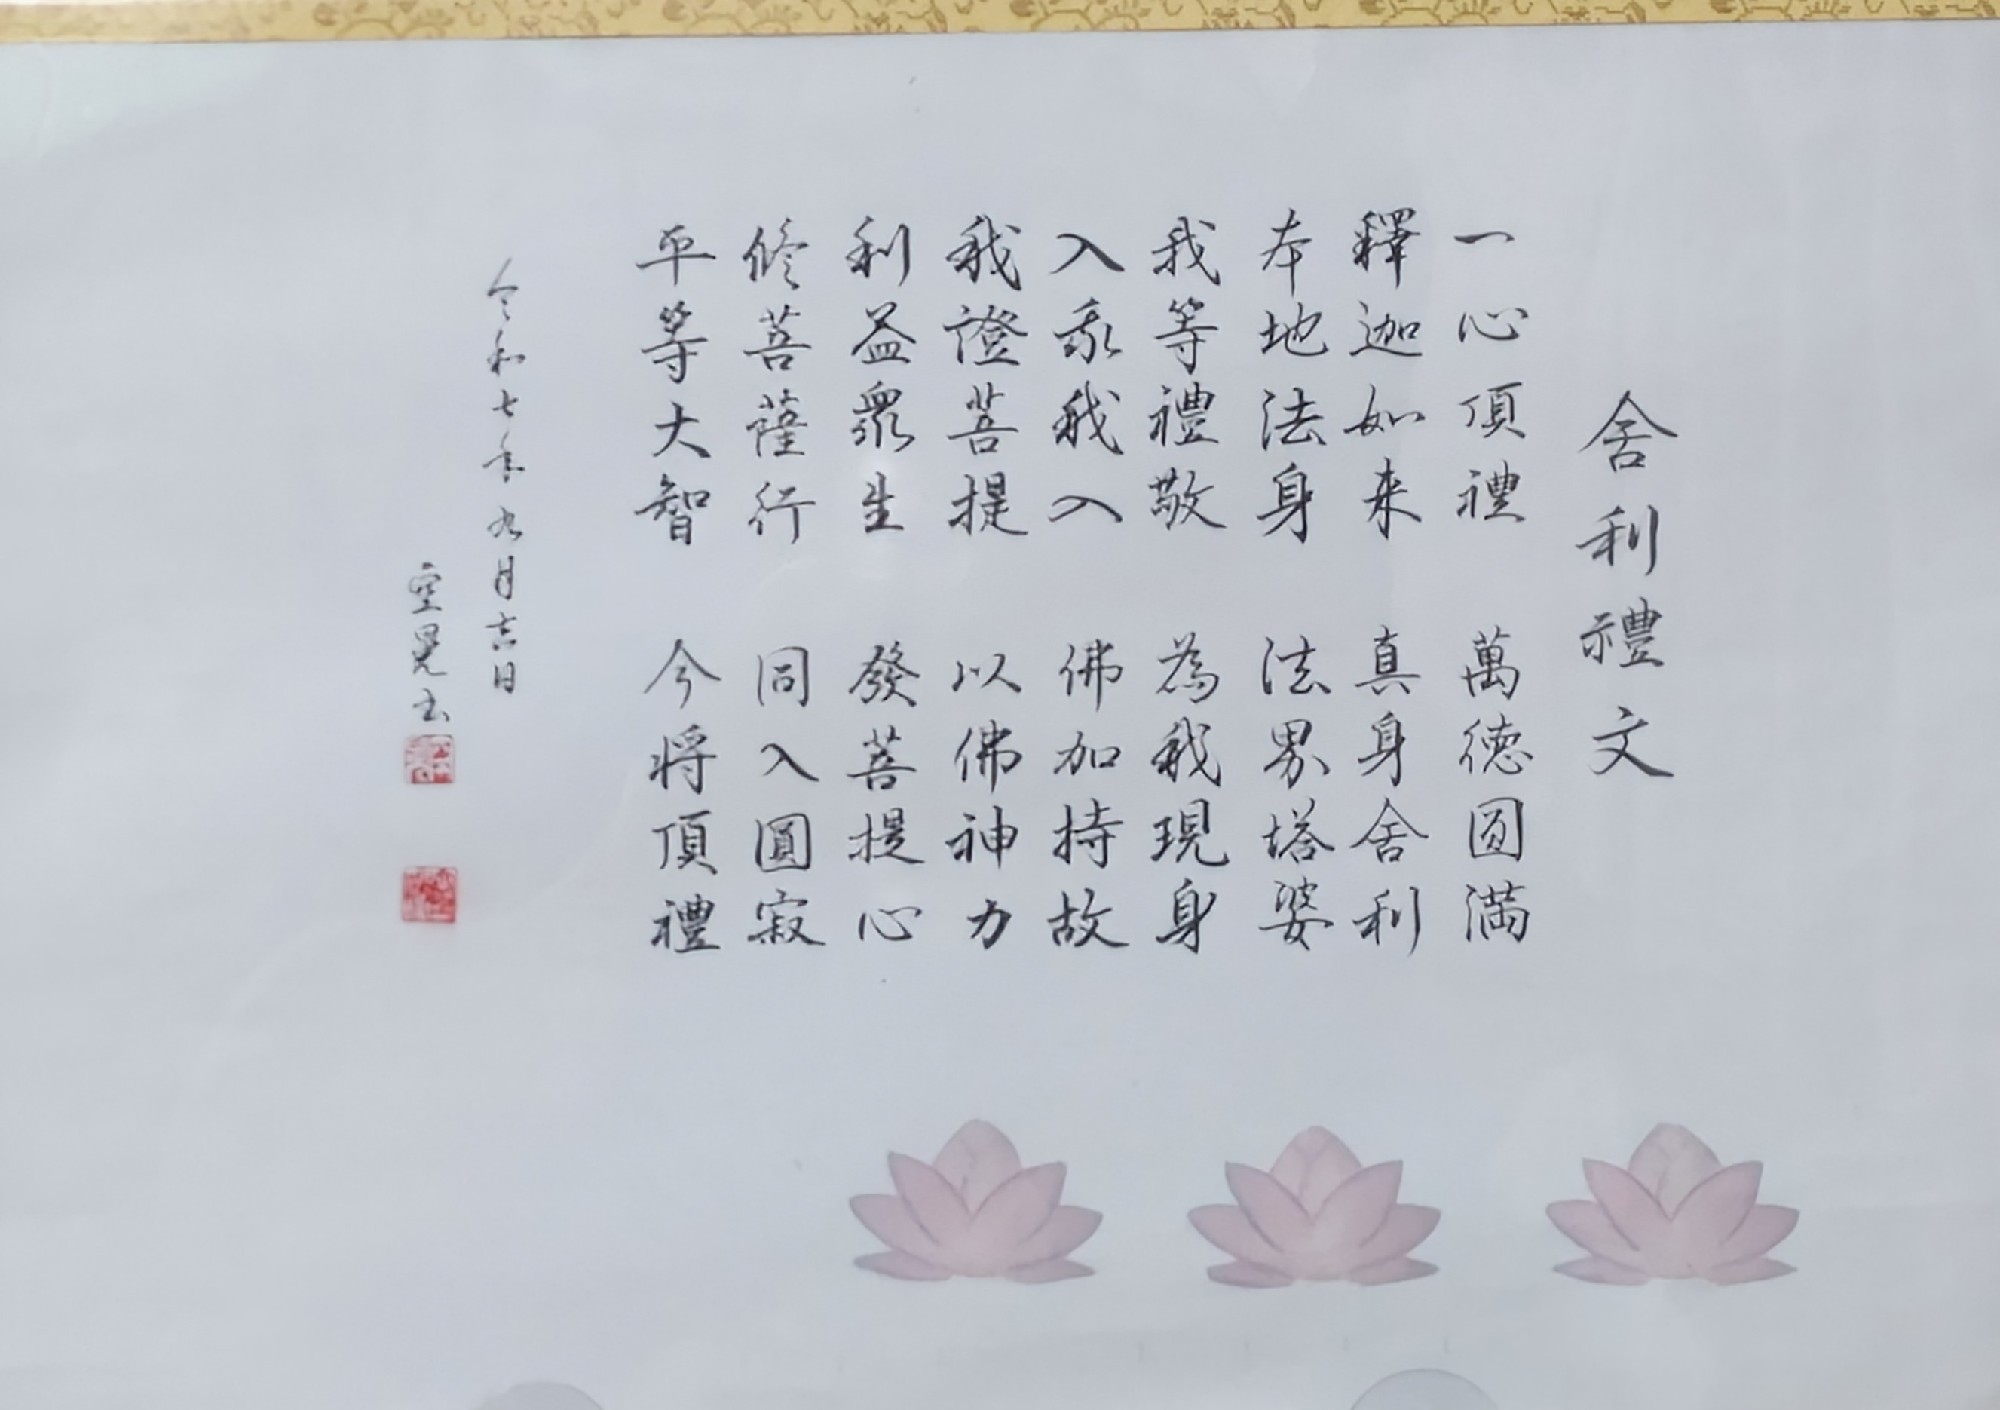 舍利禮文
一心頂禮 萬徳圓滿
釋迦如来 真身舍利
本地法身 法界塔婆
我等禮敬 為我現身
入我我入 佛加持故
我證菩提 以佛神力
利益衆生 發菩提心
修菩薩行 同入圓寂
平等大智 今将頂禮
令和七年九月吉日
空晃書